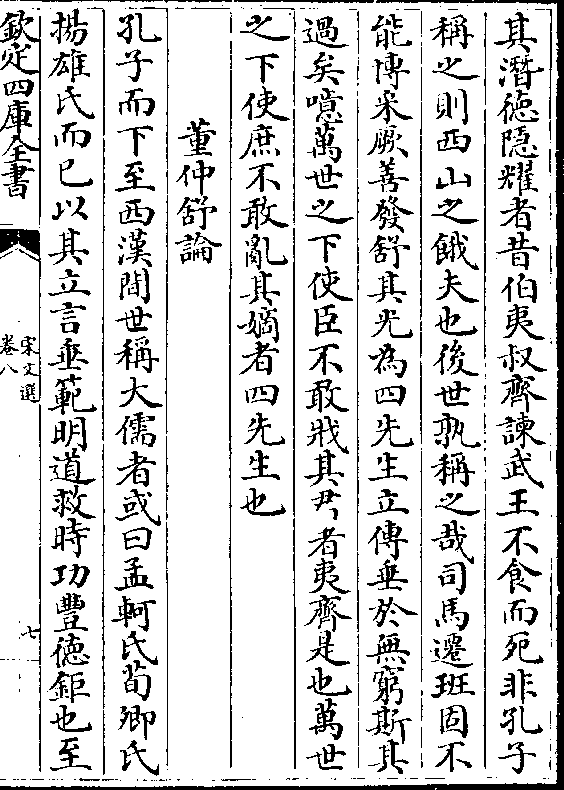 其潛徳隠耀者昔伯夷叔齊諫武王不食而死非孔子
稱之則西山之餓夫也後世孰稱之哉司馬遷班固不
能博采厥善發舒其光為四先生立傳垂於無窮斯其
過矣噫萬世之下使臣不敢戕其君者夷齊是也萬世
之下使庶不敢亂其嫡者四先生也
董仲舒論
孔子而下至西漢間世稱大儒者或曰孟軻氏荀卿氏
揚雄氏而已以其立言垂範明道救時功豐徳鉅也至
欽定四庫全書
宋文選
卷八
七